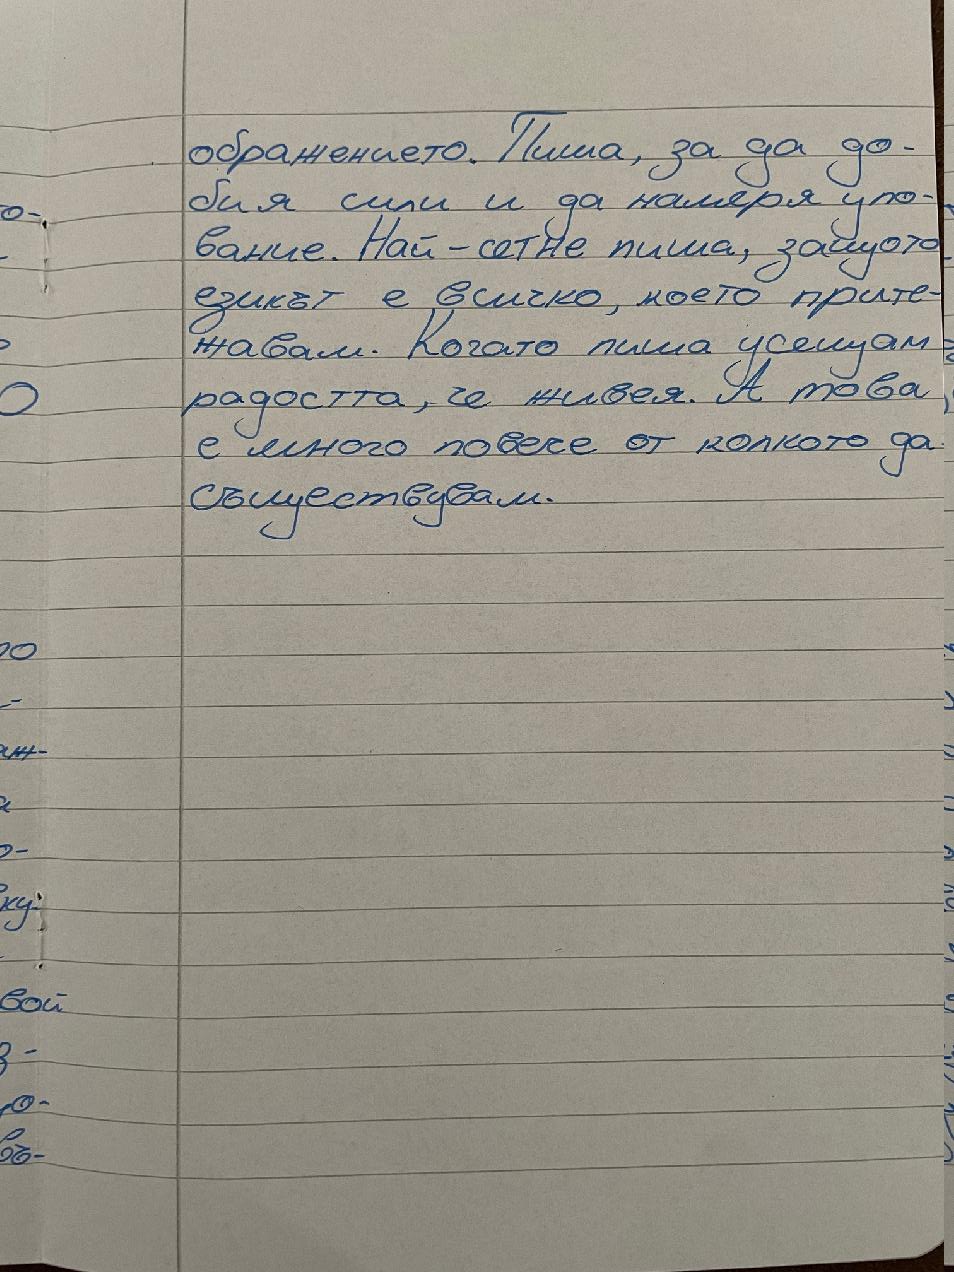 ображението. Пиша, за да до-
бия сили и да намеря упо-
вание. Най-сетне пиша, защото
езикът е всичко, което прите-
жавам. Когато пиша усещам
радостта, че живея. А това
е много повече от колкото да
съществувам.